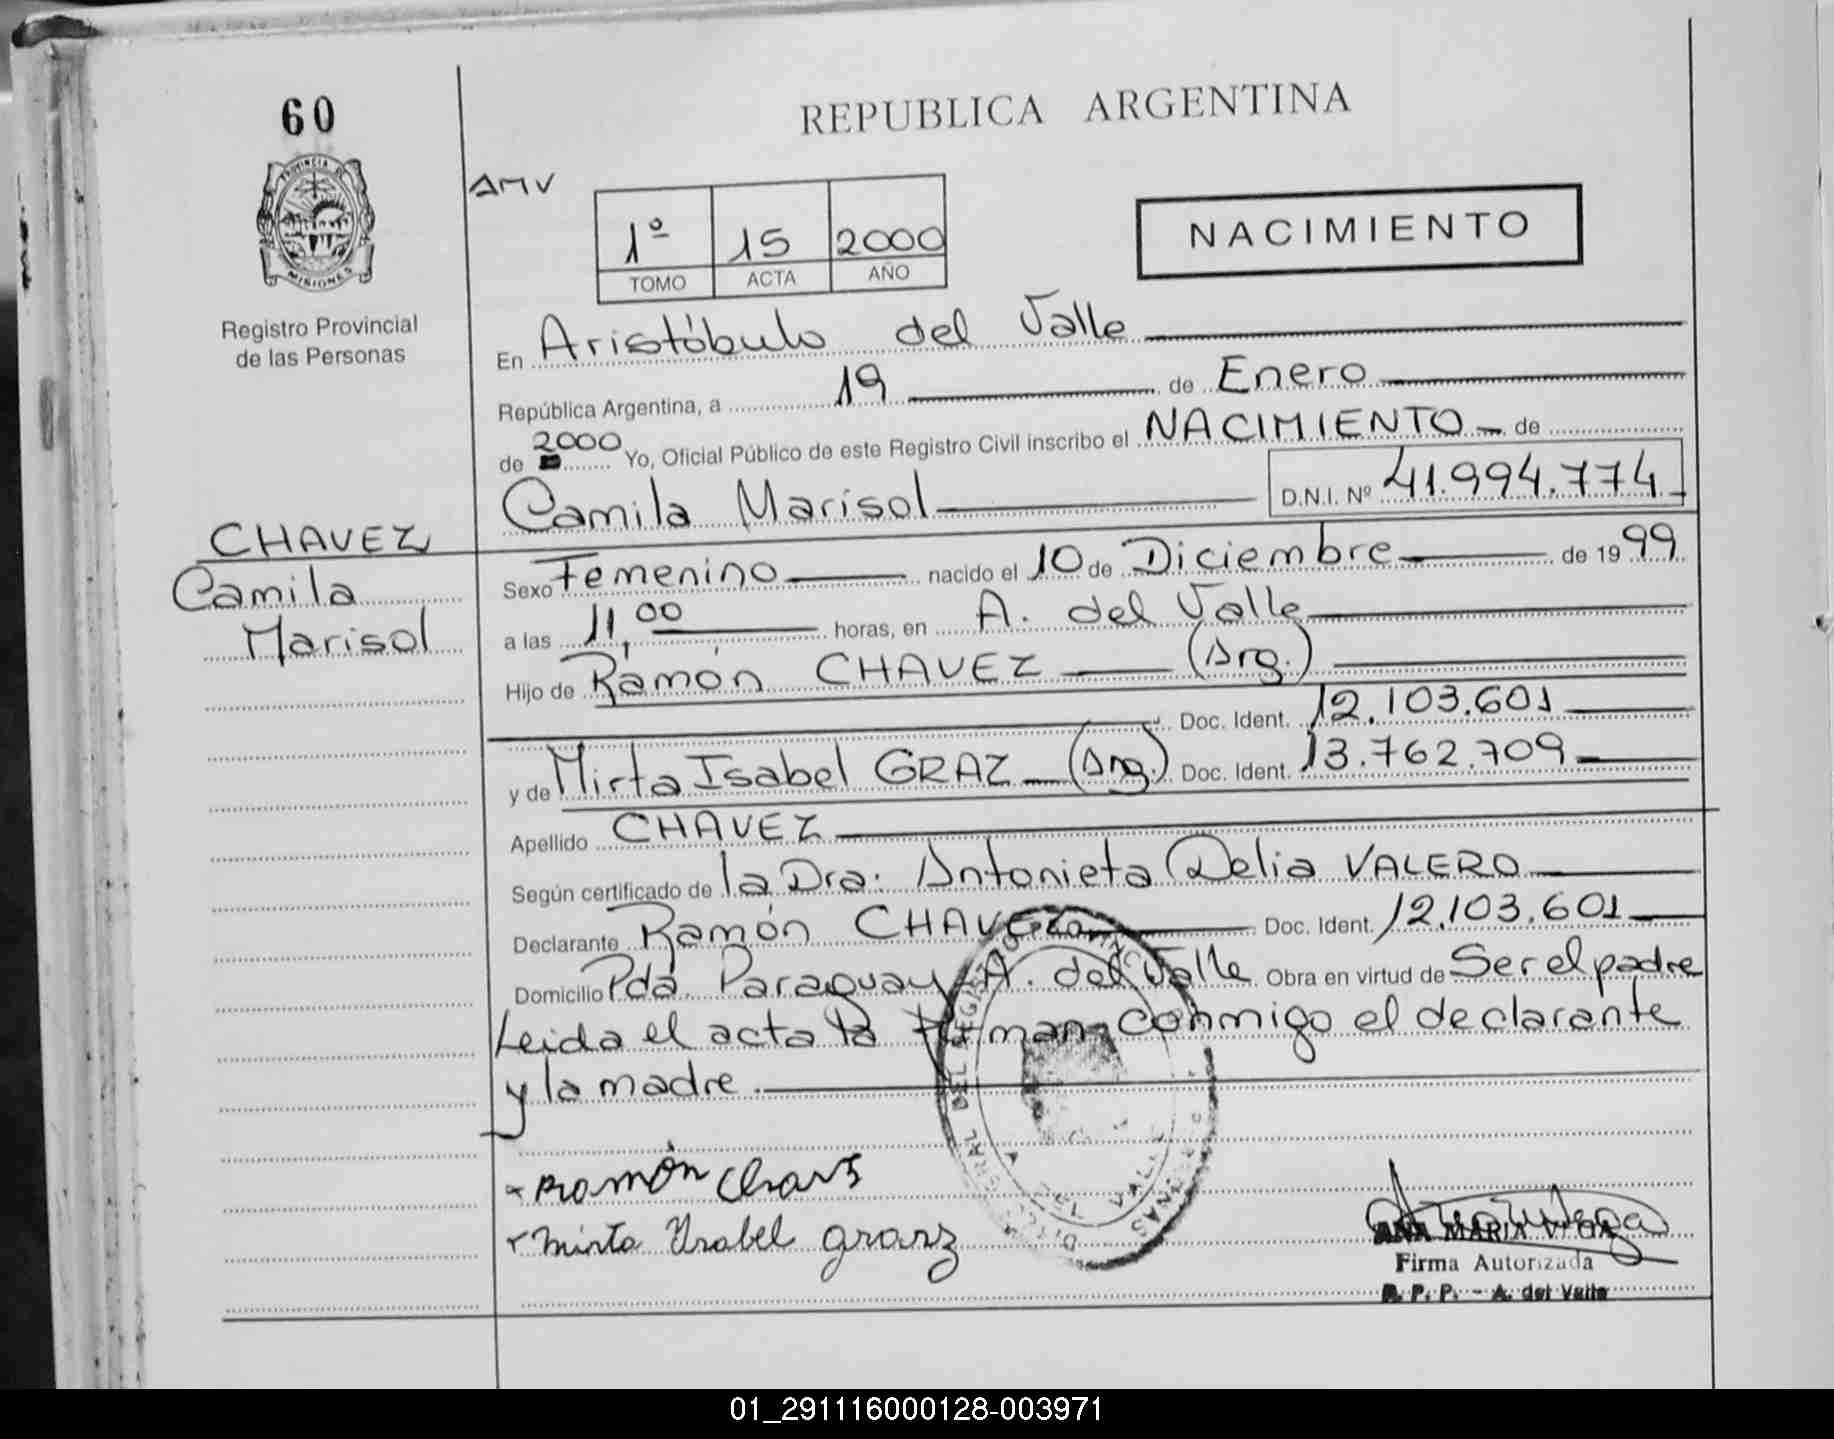 60
REPUBLICA ARGENTINA
PROVINCIA DE
MISIONES
Registro Provincial
de las Personas
AMV
1º 15 2000
TOMO ACTA AÑO
NACIMIENTO
En Aristóbulo del Valle
República Argentina, a 19 de Enero
de 2000 Yo, Oficial Público de este Registro Civil inscribo el NACIMIENTO de
Camila Marisol D.N.I. Nº 41.994.774
CHAVEZ
Camila
Marisol
Sexo Femenino nacido el 10 de Diciembre de 1999
a las 11,00 horas, en A. del Valle
Hijo de Ramón CHAVEZ (Arg.)
Doc. Ident. 12.103.601
y de Mirta Isabel GRAZ (Arg.) Doc. Ident. 13.762.709
Apellido CHAVEZ
Según certificado de la Dra. Antonieta Delia VALERO
Declarante Ramón CHAVEZ Doc. Ident. 12.103.601
Domicilio Pda. Paraguay A. del Valle Obra en virtud de Ser el padre
Leida el acta la firman conmigo el declarante
y la madre.
Ramón Chavs
Mirta Ysabel grasz
ANA MARIA VEGA
Firma Autorizada
R. P. P. - A. del Valle
01_291116000128-003971